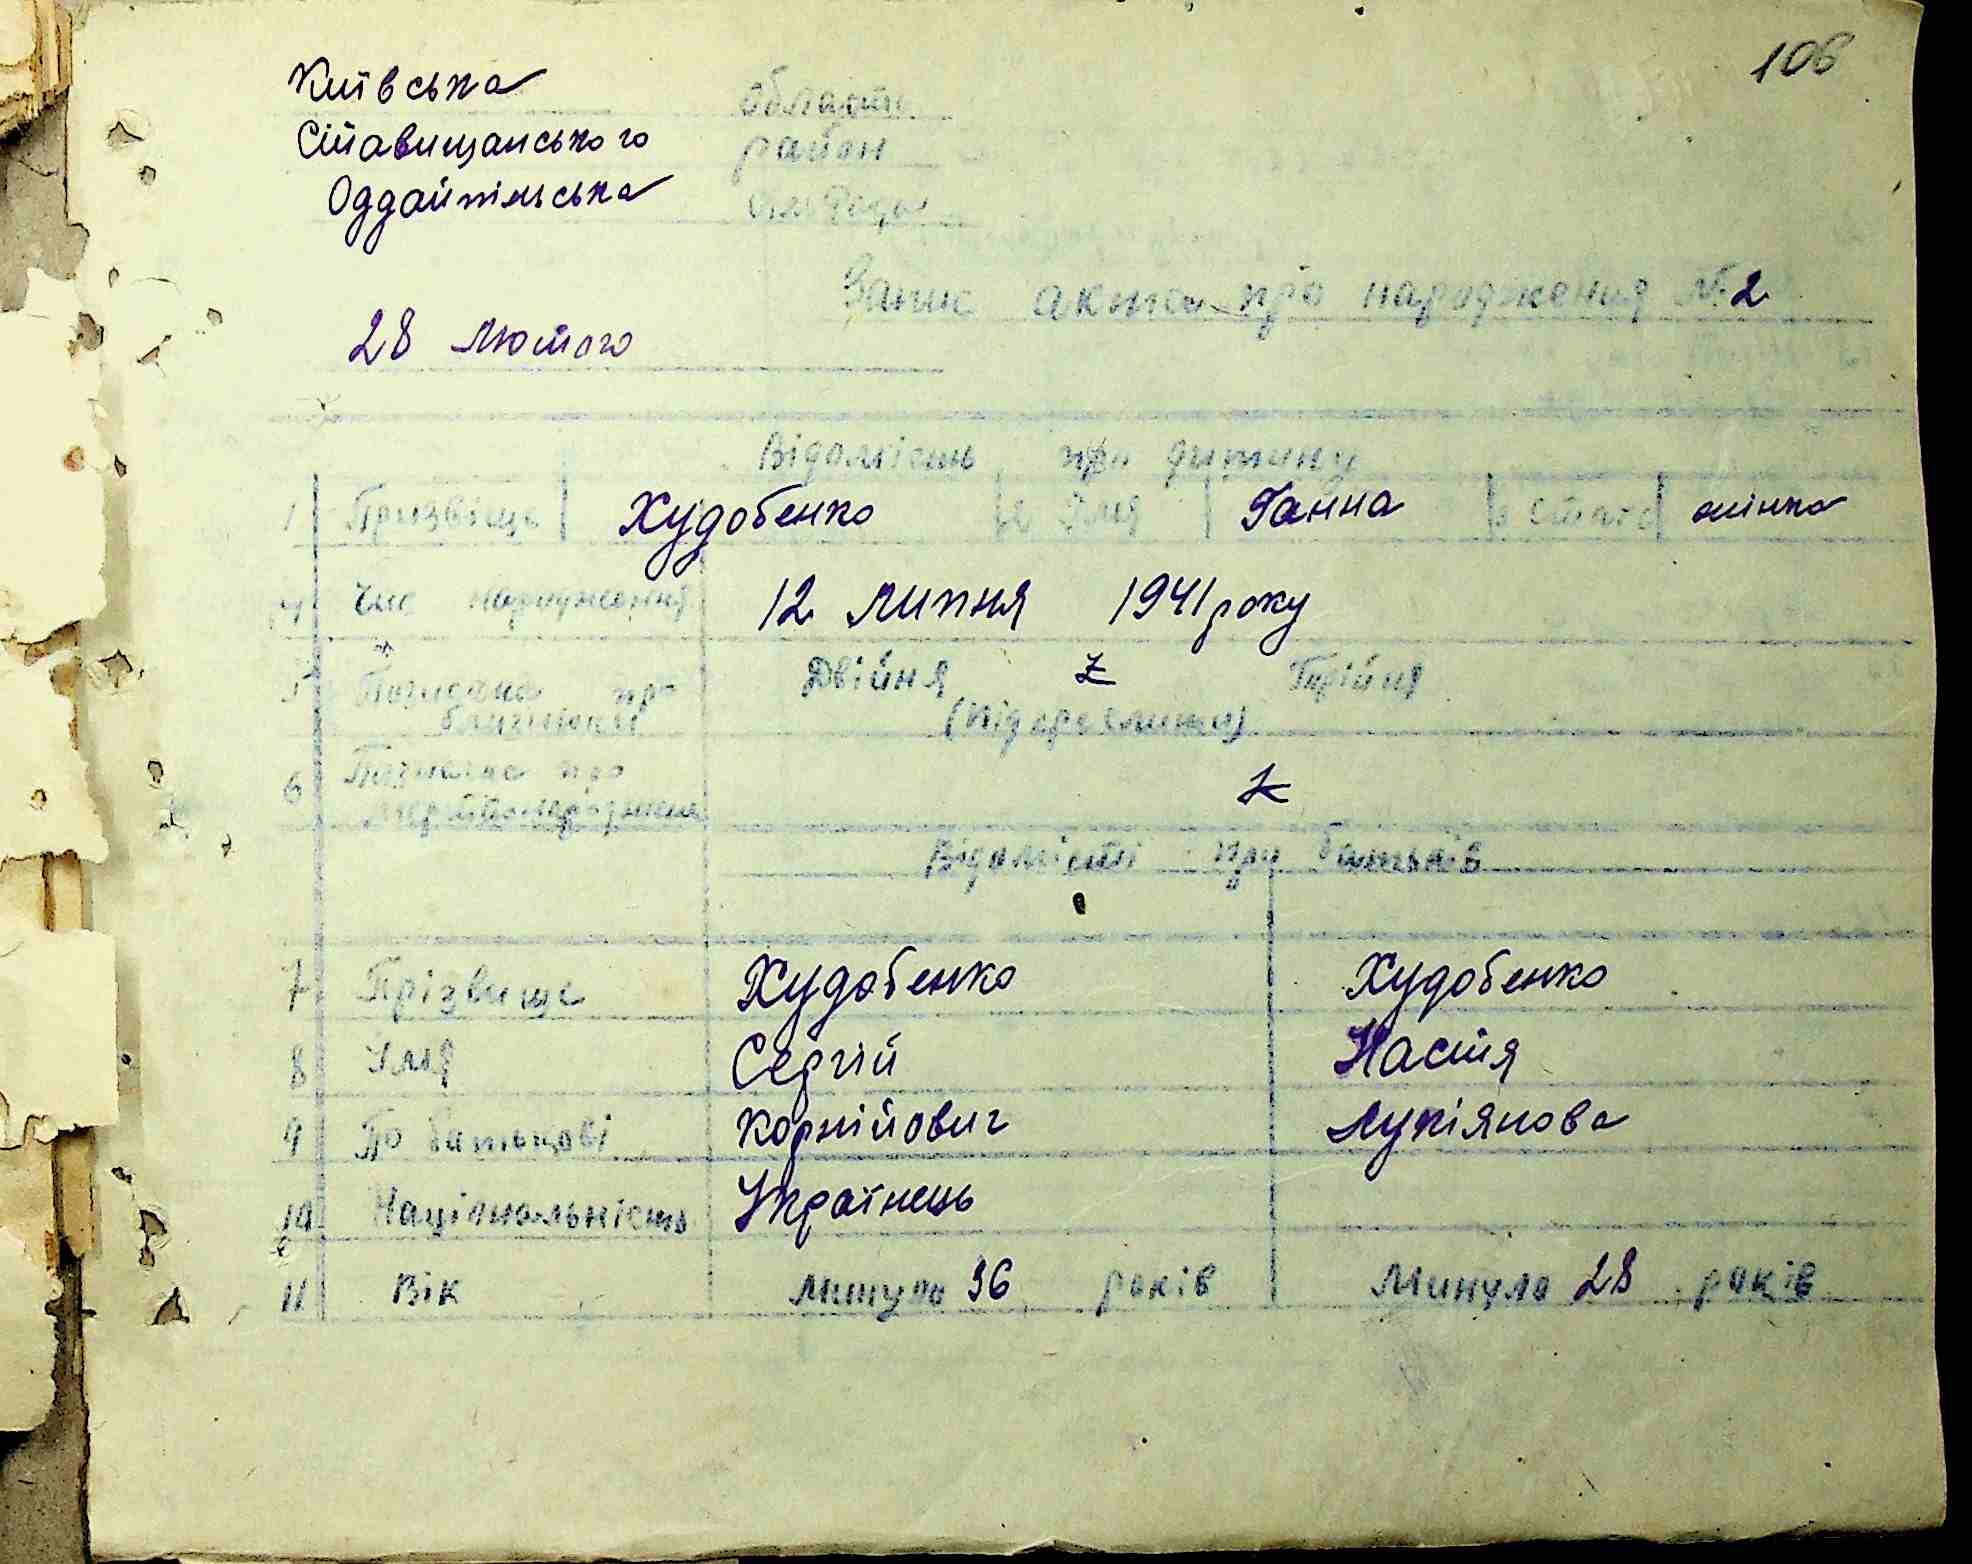 106
Київська області
Ставищанського район
Оддайпільська сільРади
Запис акта про народження № 2
28 Лютого
Відомість про дитину
1 Прізвище Худобенко 2 Імя Ганна 3 Стать жінка
4 Час народження 12 липня 1941 року
5 Позначка про близнюки Двійня Z Трійня
(підкреслити)
6 Позначка про мертвонародження Z
Відомісті про батьків
7 Прізвище Худобенко Худобенко
8 Імя Сергій Настя
9 По батькові Корнійович Лукіянова
10 Національність Українець
11 Вік Минуло 36 років Минуло 28 років